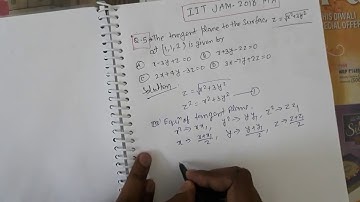 IIT JAM-2018 MA
Q.5 The tangent plane to the surface z = √(x²+3y²)
at (1,1,2) is given by
(A) x-3y+z=0 (B) x+3y-2z=0
(C) 2x+4y-3z=0 (D) 3x-7y+2z=0
Solution
z = √(x²+3y²)
z² = x²+3y² — ①
Equⁿ of tangent plane
x² → xx₁, y² → yy₁, z² → zz₁
x → (x+x₁)/2, y → (y+y₁)/2, z → (z+z₁)/2